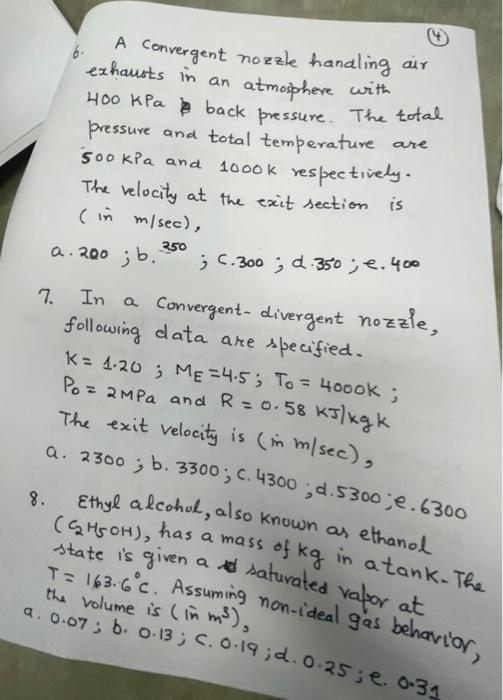 4
6. A Convergent nozzle handling air
exhausts in an atmosphere with
400 KPa back pressure. The total
pressure and total temperature are
500 KPa and 1000K respectively.
The velocity at the exit section is
(in m/sec),
a. 200 ; b. 250 ; C. 300 ; d. 350 ; e. 400
7. In a Convergent-divergent nozzle,
following data are specified.
K = 1.20 ; ME = 4.5 ; To = 4000K ;
Po = 2MPa and R = 0.58 KJ/kgk
The exit velocity is (in m/sec),
a. 2300 ; b. 3300 ; C. 4300 ; d. 5300 ; e. 6300
8. Ethyl alcohol, also known as ethanol
(C2H5OH), has a mass of kg in a tank. The
state is given a saturated vapor at
T = 163.6°C. Assuming non-ideal gas behavior,
the volume is (in m³),
a. 0.07 ; b. 0.13 ; C. 0.19 ; d. 0.25 ; e. 0.31